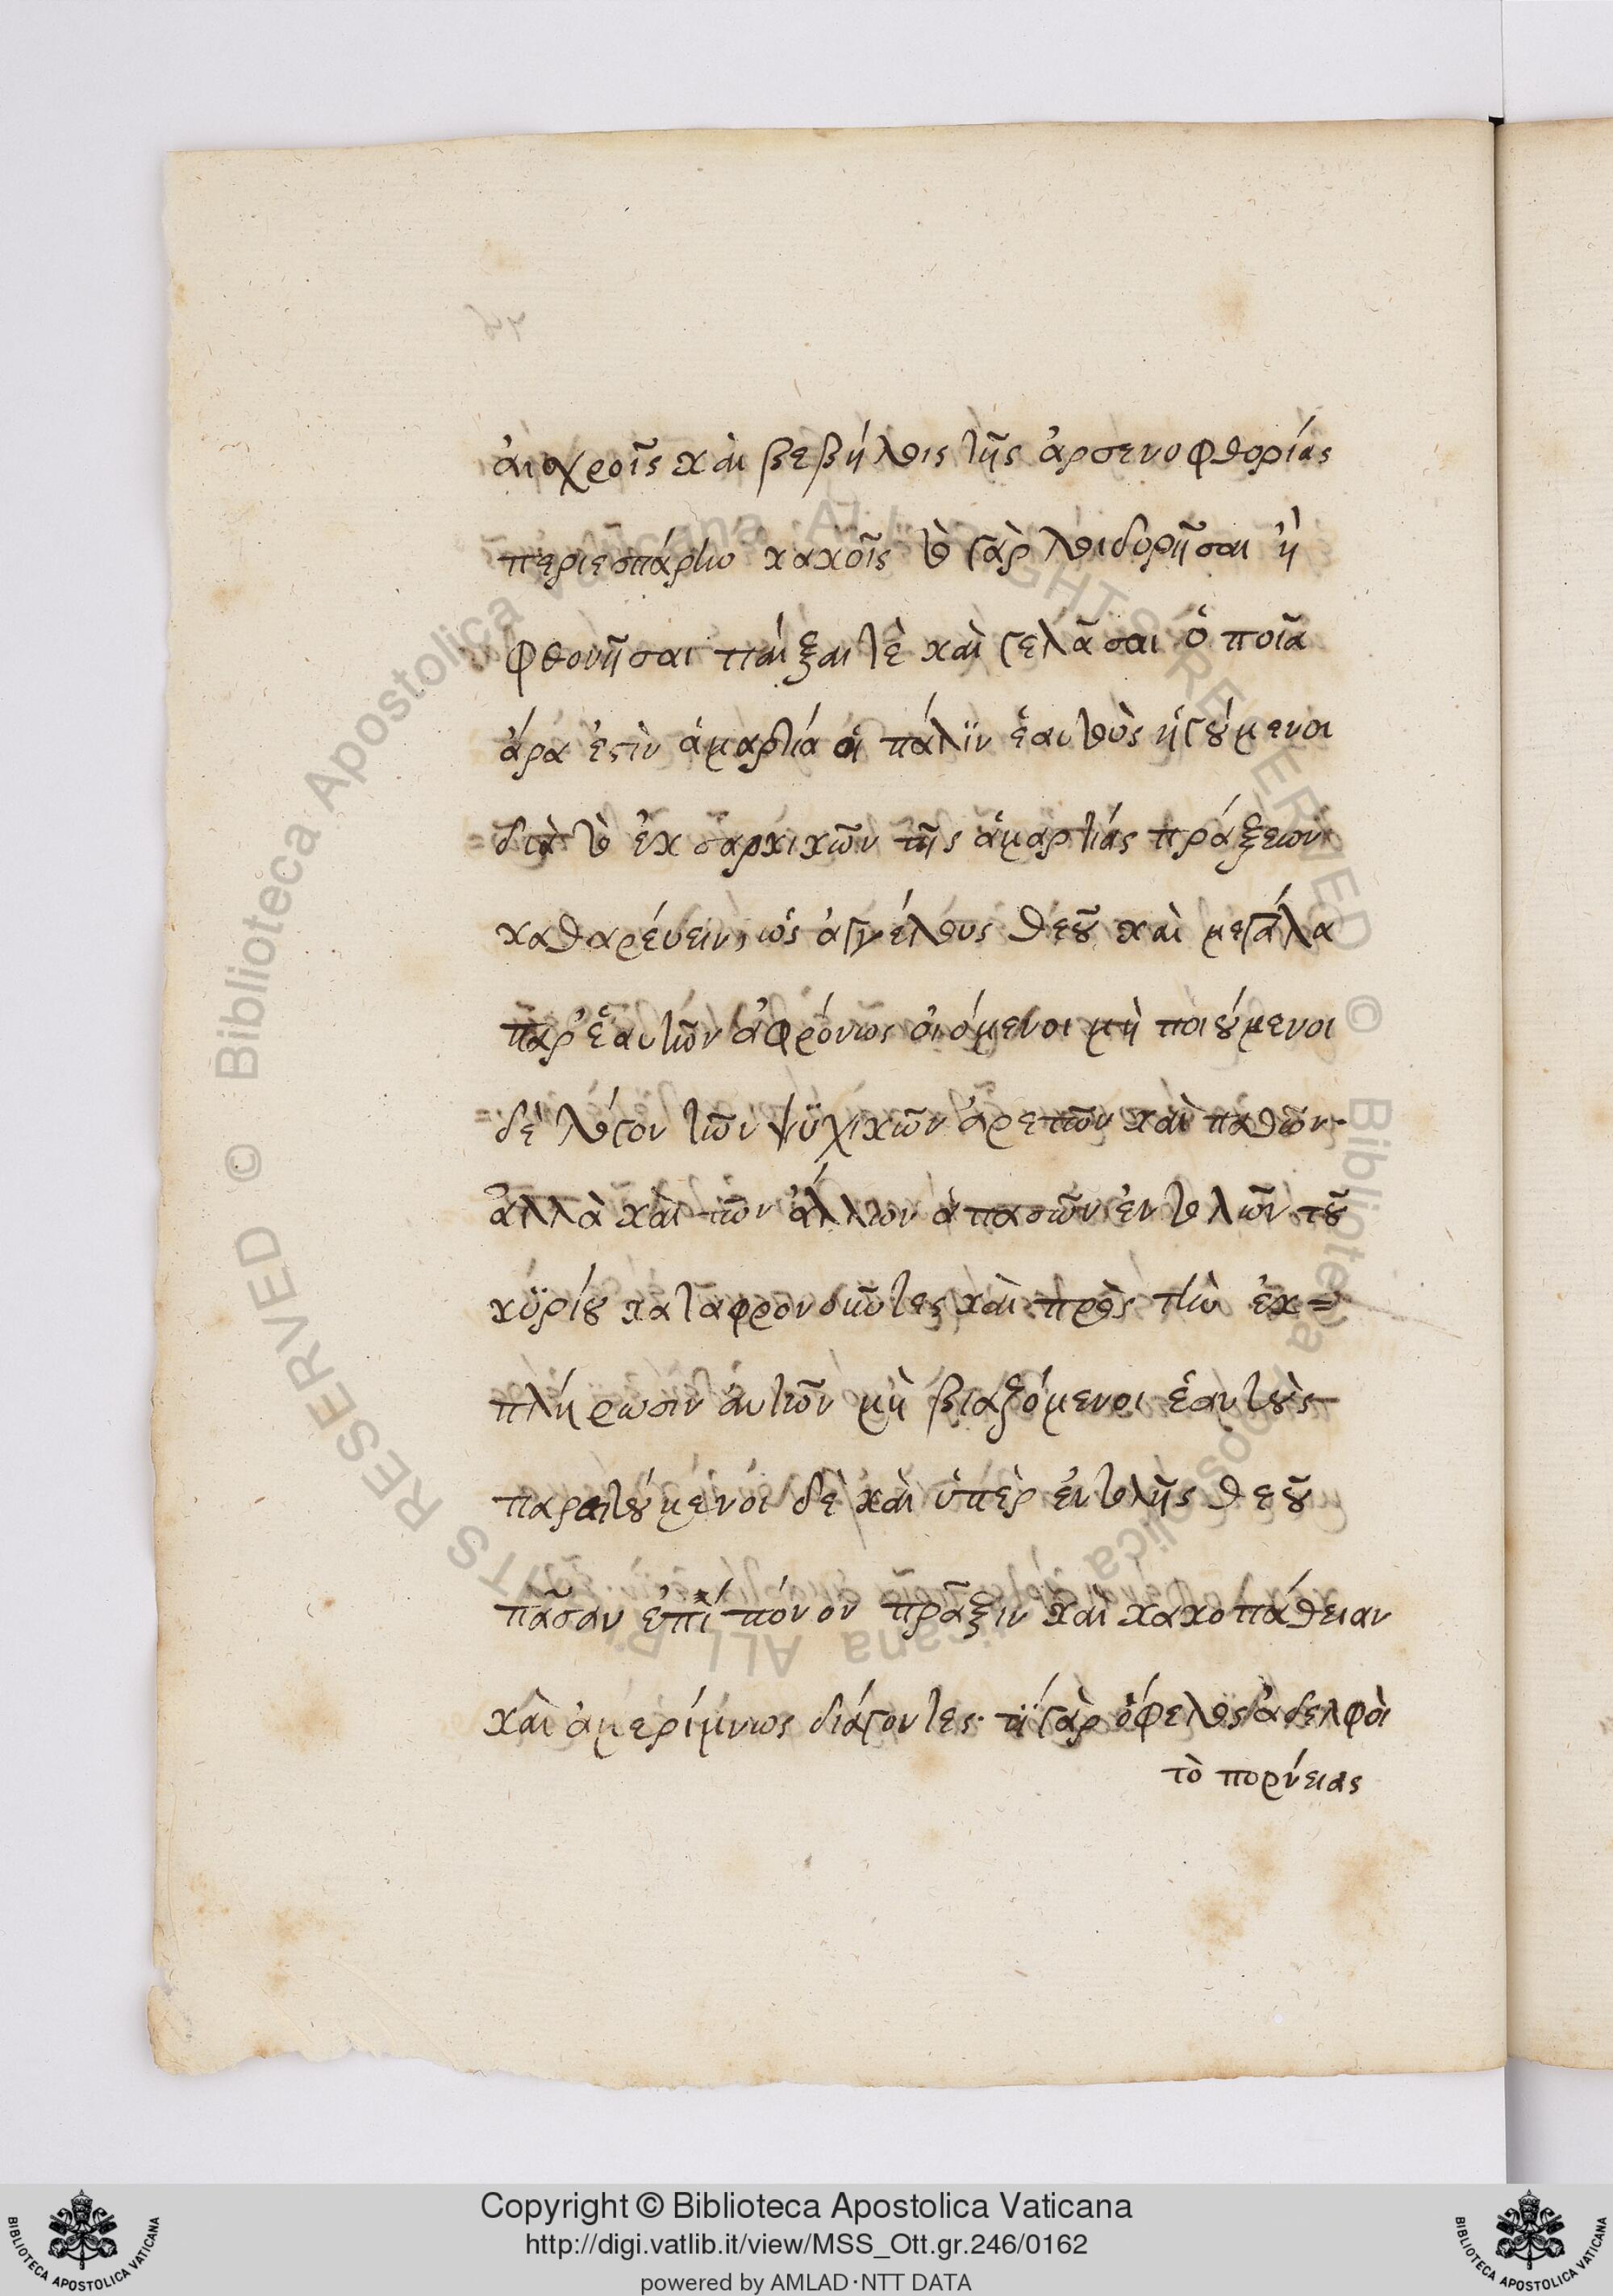 ἀισχροῖς καὶ βεβήλοις τῆς ἀρσενοφθορίας
περιεπάρην κακοῖς τὸ γὰρ λοιδορῆσαι ἢ
φθονῆσαι παίξαι τὲ καὶ γελᾶσαι ὁποῖα
ἄρα ἐστὶν ἁμαρτία οἱ πάλϊν ἑαυτοὺς ἡγούμενοι
διὰ τὸ ἐκ σαρκικῶν τῆς ἁμαρτίας πράξεων
καθαρεύειν, ὡς ἀγγέλους θεοῦ καὶ μεγάλα
παρ' ἑαυτῶν ἀφρόνως οἰόμενοι μὴ ποιούμενοι
δὲ λόγον τῶν ψϋχικῶν ἀρετῶν καὶ παθῶν·
ἀλλὰ καὶ τῶν ἄλλων ἁπασῶν ἐντολῶν τοῦ
κϋρίου καταφρονοῦντες καὶ πρὸς τὴν ἐκ=
πλήρωσιν ἀυτῶν μὴ βιαζόμενοι ἑαυτοὺς
παραιτούμενοι δὲ καὶ ὑπὲρ ἐντολῆς θεοῦ
πᾶσαν ἐπίπονον πρᾶξιν καὶ κακοπάθειαν
καὶ ἀμερίμνως διάγοντες· τί γὰρ ὄφελος ἀδελφοὶ
τὸ πορνείας
Copyright © Biblioteca Apostolica Vaticana
http://digi.vatlib.it/view/MSS_Ott.gr.246/0162
powered by AMLAD·NTT DATA